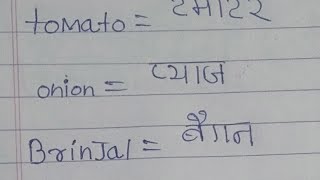 tomato = टमाटर
onion = प्याज
BrinJal = बैंगन